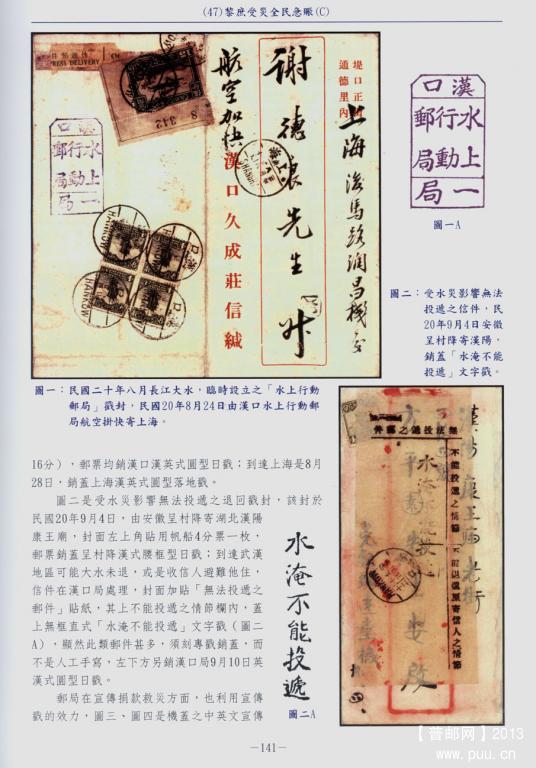 (47)黎庶受災全民急賑(C)
謝德浪先生
航空加快
漢口久成莊信緘
堤口正街
通德里內
上海
HANKOW
漢口
水上
行動
郵局
一
局
圖一A
圖一：民國二十年八月長江大水，臨時設立之「水上行動
郵局」戳封，民國20年8月24日由漢口水上行動郵
局航空掛快寄上海。
圖二：受水災影響無法
投遞之信件，民
20年9月4日安徽
呈村降寄漢陽，
銷蓋「水淹不能
投遞」文字戳。
16分），郵票均銷漢口漢英式圓型日戳；到達上海是8月
28日，銷蓋上海漢英式圓型落地戳。
圖二是受水災影響無法投遞之退回戳封，該封於
民國20年9月4日，由安徽呈村降寄湖北漢陽
康王廟，封面左上角貼用帆船4分票一枚，
郵票銷蓋呈村降漢式腰框型日戳；到達武漢
地區可能大水未退，或是收信人避難他住，
信件在漢口局處理，封面加貼「無法投遞之
郵件」貼紙，其上不能投遞之情節欄內，蓋
上無框直式「水淹不能投遞」文字戳（圖二
A），顯然此類郵件甚多，須刻專戳銷蓋，而
不是人工手寫，左下方另銷漢口局9月10日英
漢式圓型日戳。
郵局在宣傳捐款救災方面，也利用宣傳
戳的效力，圖三、圖四是機蓋之中英文宣傳
水淹不能投遞
圖二A
無法投遞之郵件
不能投遞之情節
漢陽康王廟老街
－141－
【普邮网】2013
www.puu.cn